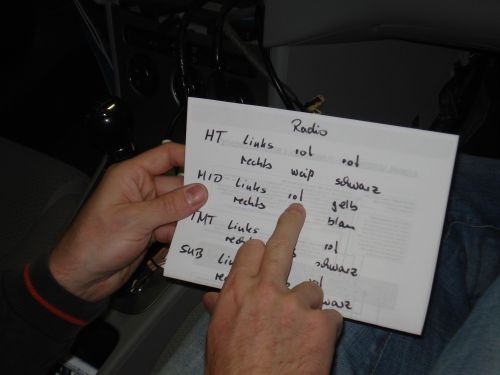 Radio
HT Links rot rot
rechts weiß schwarz
MID Links rot gelb
rechts blau
TMT Links rot
rechts schwarz
SUB rot